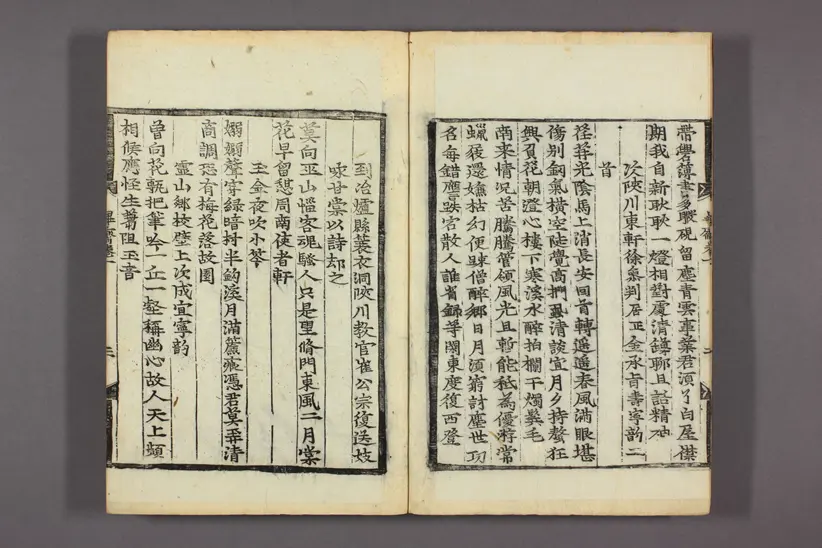 帶學薄書多暇硯留塵青雲事業君須了白屋襟
期我自新耿耿一燈相對處清鐏聊且話精神
次陜川東軒徐參判居正金永肯壽寧韵二
首
荏苒光陰馬上消長安回首轉迢迢春風滿眼堪
傷別釰氣橫空陡覺高捫虱清談宜月夕持螯狂
興負花朝澄心樓下寒溪水醉拍欄干燭拳毛
南來情況苦騰騰管領風光且暫能秪爲優游常
蠟屐還嫌枯幻便疎僧醉鄉日月須窮討塵世功
名每錯譍咲客散人誰省錄等閑東度復西登
到冶爐縣蓑衣洞陜川教官崔公宗復送妓
咏甘棠以詩却之
莫向巫山惱客魂騷人只是里脩門東風二月棠
花早曾憩周南使者軒
玉金夜吹小笒
嫋嫋聲穿綠暗村半鉤淡月滿簾痕憑君莫弄清
商調恐有梅花落故園
靈山鄉校壁上次成宜寧韵
曾向花甎把筆吟一丘一壑稱幽心故人天上頻
相候應怪生蒭阻玉音